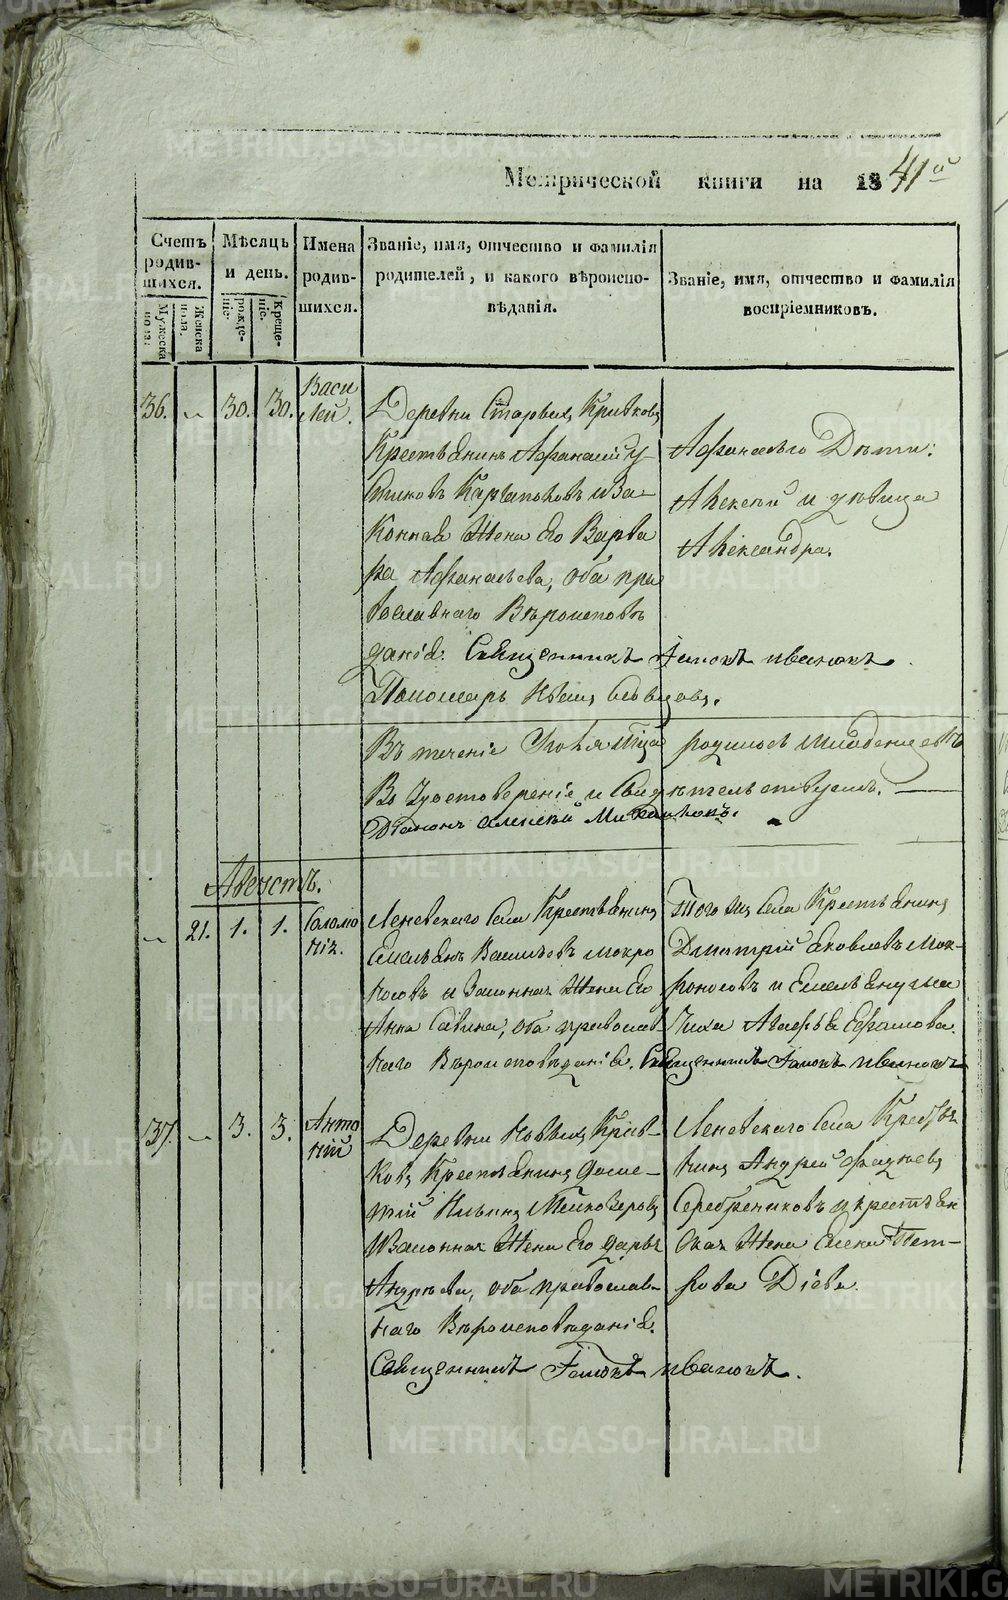 Метрической книги на 1841й
Счетъ родив-шихся.
Мужеска пола.
Женска пола.
Мѣсяцъ и день.
Рожде-ніе.
Креще-ніе.
Имена родив-шихся.
Званіе, имя, отчество и фамилія
родителей, и какого вѣроиспо-
вѣданія.
Званіе, имя, отчество и фамилія
воспріемниковъ.
36. „ 30. 30. Васи
лей.
Деревни Старыхъ Кривковъ
Крестьянинъ Афанасій
и За-
конная Жена Его Варва
ра Афанасьева, оба пра
вославнаго Вѣроисповѣ
данія. Священникъ Іаковъ Ивановъ.
Пономарь Словцовъ.
Афанасьего Дѣти:
Алексѣй и дѣвица
Александра.
Въ теченіе родилось Младенцевъ
Въ Удостовереніе и Свидѣтельствуемъ.
Діаконъ Алексѣй
Августъ.
„ 21. 1. 1. Соломо
нія.
Леневскаго Села Крестьянинъ
Емельянъ Васильевъ Мокро
носовъ и Законная Жена Его
Анна Савина, оба православ-
наго Вѣроисповѣданія. Священникъ Іаковъ Ивановъ
Того жъ Села Крестьянинъ
Дмитрій Яковлевъ Мок-
роносовъ и
Агафья
37. „ 3. 3. Анто
ній
Деревни Новыхъ Крив-
ковъ Крестьянинъ
Ильинъ
и Законная Жена Его Дарья
Андреева, оба православ-
наго Вѣроисповѣданія.
Священникъ Іаковъ Ивановъ.
Леневскаго Села Крестья
нинъ Андрей Фадѣевъ
Серебрениковъ и крестьян
ская Жена Елена Пет-
рова Діева.
METRIKI.GASO-URAL.RU